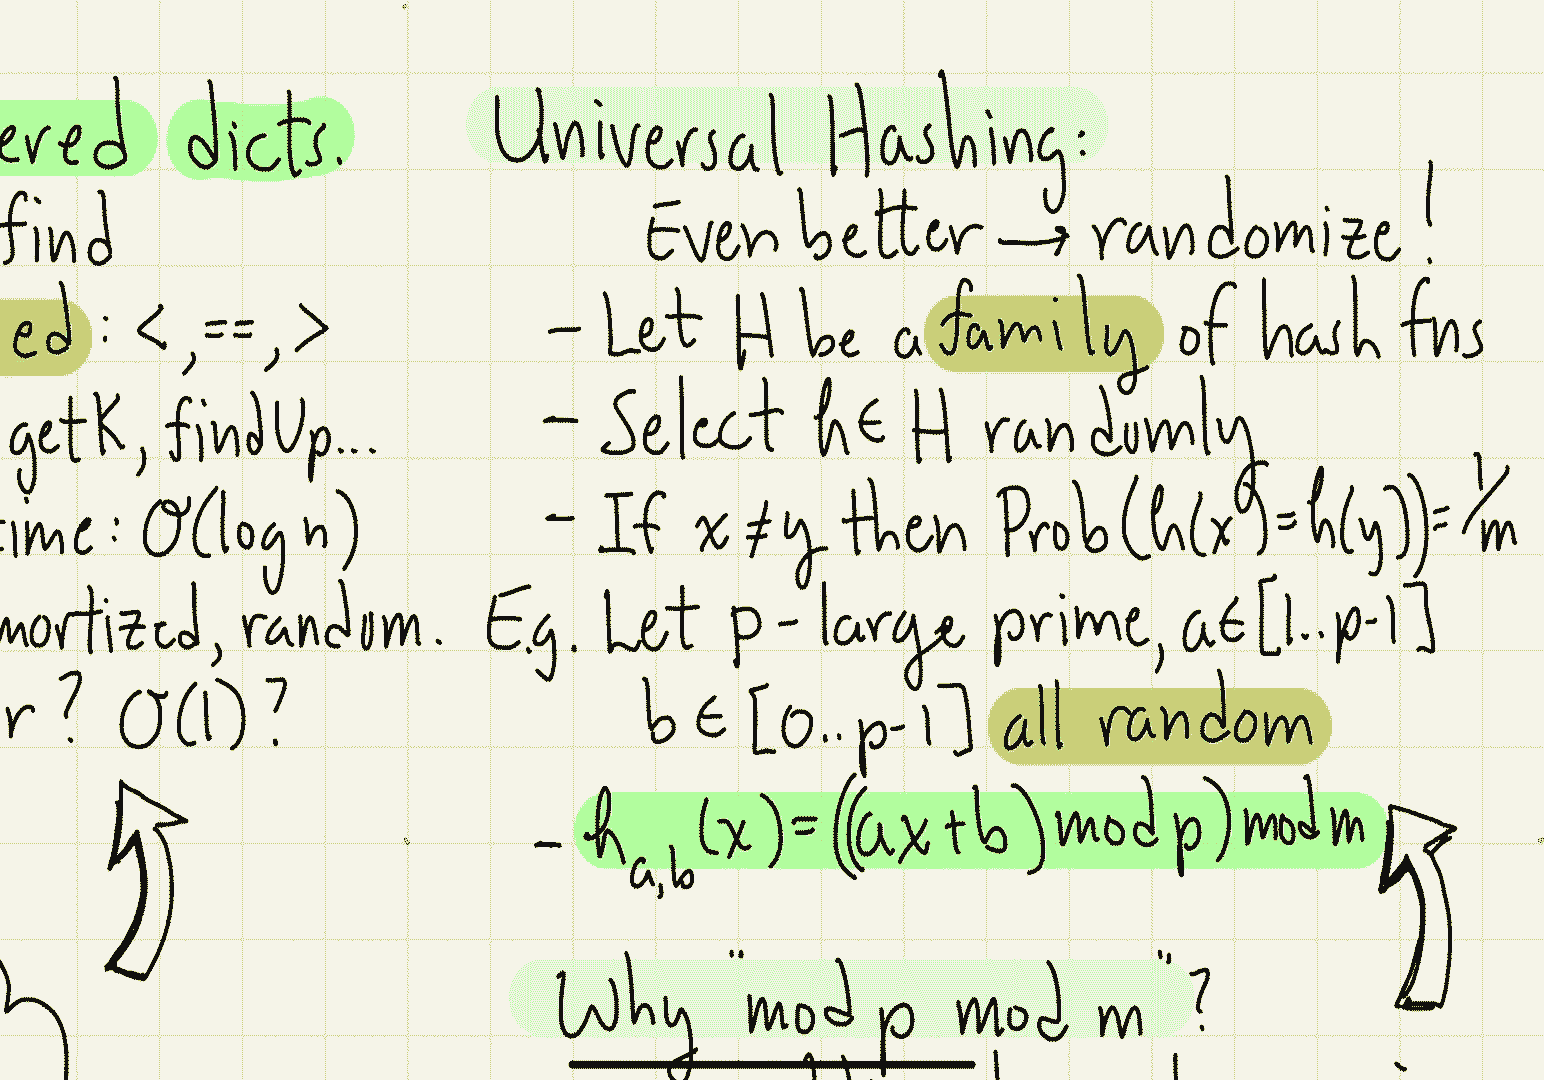 ered dicts.
find
ed : < , == , >
getK, findUp...
time: O(log n)
mortized, random.
r? O(1)?
Universal Hashing:
Even better → randomize!
- Let H be a family of hash fns
- Select h ∈ H randomly
- If x ≠ y then Prob(h(x) = h(y)) = 1/m
E.g. Let p - large prime, a ∈ [1..p-1]
b ∈ [0..p-1] all random
- h_{a,b}(x) = ((ax+b) mod p) mod m
Why "mod p mod m"?